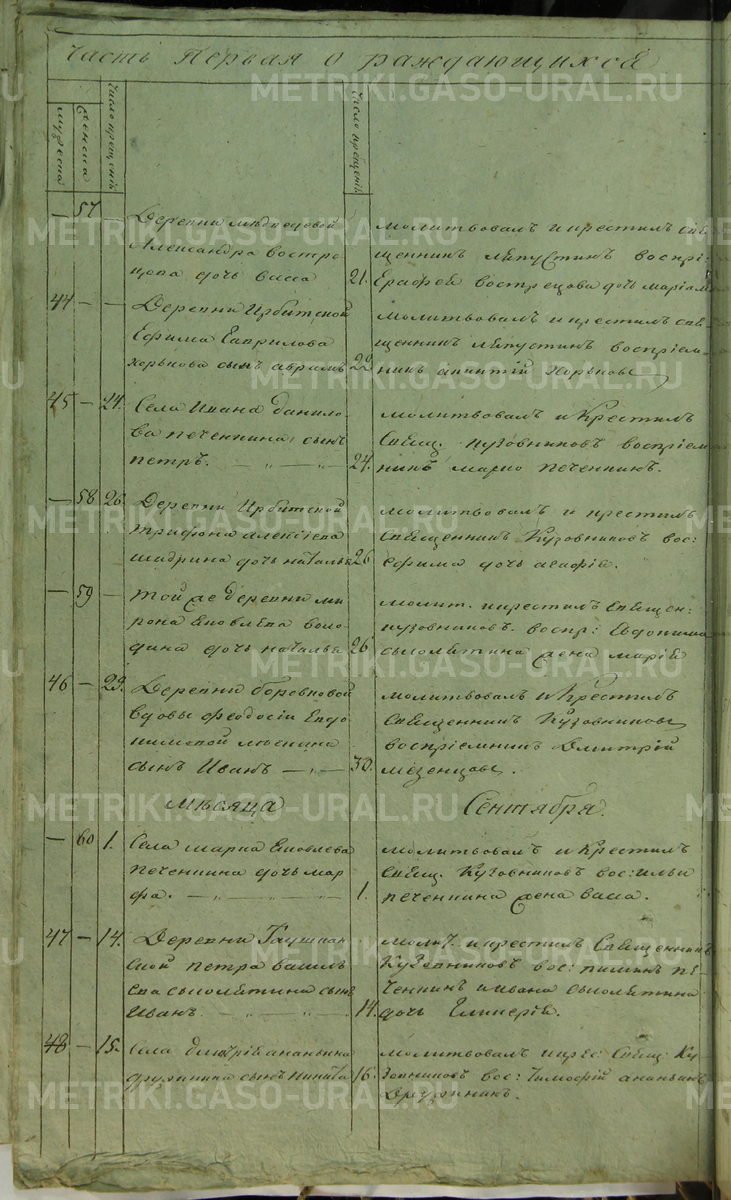 Часть Первая о раждающихся
мужеска
женска
число рождений
число крещений
— 57 —
Деревни
Александра Востре
цова дочь васса
21.
молитвовалъ и крестилъ свя
щенникъ Ляпустинъ воспрі:
Вострецова дочь
44 — —
Деревни Ирбитской
Ефима Гаврилова
Хорькова сынъ
22
молитвовалъ и крестилъ свя
щенникъ Ляпустинъ воспріем
никъ Хорьковъ
45 — 24.
Села Ивана данило
ва печеркина сынъ
петръ.
24.
молитвовалъ и Крестилъ
Свящ. Кузовниковъ воспріем
никъ марко печеркинъ.
— 58 26.
Деревни Ирбитской
трифона алексіева
шадрина дочь наталья
26
молитвовалъ и крестилъ
Священникъ Кузовниковъ вос:
Ефима дочь агафія.
— 59 —
той же деревни ми
рона Яковлева воло
дина дочь наталья
26
молит. и крестилъ Священ:
кузовниковъ. воспр: Евдокима
жена марія
46 — 29.
Деревни боровковой
вдовы феодосіи Евдо
кимовой
сынъ Иванъ
30.
молитвовалъ и Крестилъ
Священникъ Кузовниковъ
воспріемникъ Дмитрій
мезенцовъ.
мѣсяца Сентября.
— 60 1.
Села марка Яковлева
печеркина дочь мар
фа.
1.
молитвовалъ и Крестилъ
Свящ. Кузовниковъ вос: ильи
печеркина жена васса.
47 — 14.
Деревни
петра василь
ева сынъ
Иванъ.
14.
молит. и крестилъ Священникъ
Кузовниковъ вос: пименъ пе
черкинъ и ивана
дочь Гликерія.
48 — 15.
Села дмитрія ананьина
дружинина сынъ никита
16.
молитвовалъ и крес: Свящ: Ку
зовниковъ вос: тимофій ананьинъ
Дружининъ.
METRIKI.GASO-URAL.RU